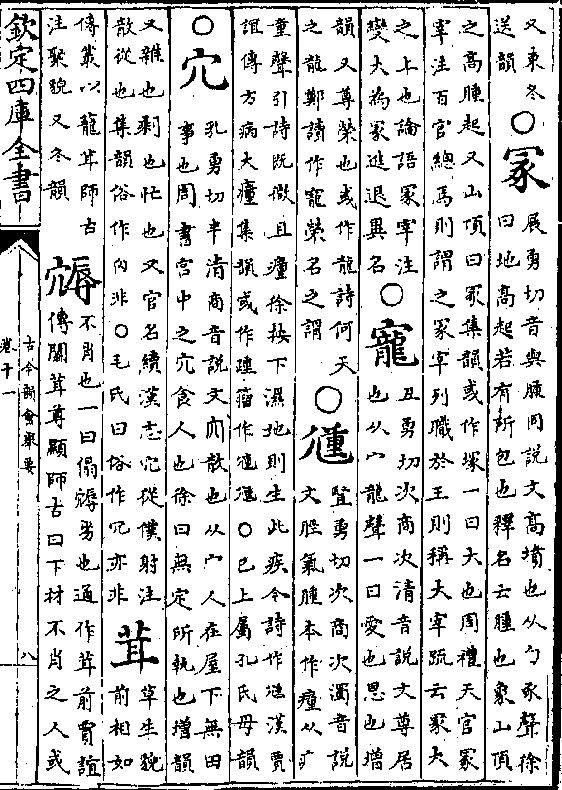 又東冬
送韻
○冢
展勇切音與腫同說文高墳也从勹豕聲徐
曰地高起若有所包也釋名云腫也象山頂
之高腫起又山頂曰冢集韻或作塚一曰大也周禮天官冢
宰注百官總焉則謂之冢宰列職於王則稱大宰疏云冢大
之上也論語冢宰注
變大為冢進退異名
○寵
丑勇切次商次清音說文尊居
也从宀龍聲一曰愛也恩也增
韻又尊榮也或作龍詩何天
之龍鄭讀作寵榮名之謂
○尰
竪勇切次商次濁音說
文脛氣腫本作瘇从疒
重聲引詩既微且瘇徐按下濕地則生此疾今詩作尰漢賈
誼傳方病大瘇集韻或作 作 ○已上屬孔氏母韻
○宂
孔勇切半清商音說文㪔也从宀人在屋下無田
事也周書宮中之宂食人也徐曰無定所執也增韻
又雜也剩也忙也又官名續漢志宂從僕射注
散從也集韻俗作 非○毛氏曰俗作冗亦非
茸
草生貌
前相如
傳叢以龍茸師古
注聚貌又冬韻
不肖也一曰傝 劣也通作茸前賈誼
傳闒茸尊顯師古曰下材不肖之人或
欽定四庫全書
古今韻會舉要
卷十一
八